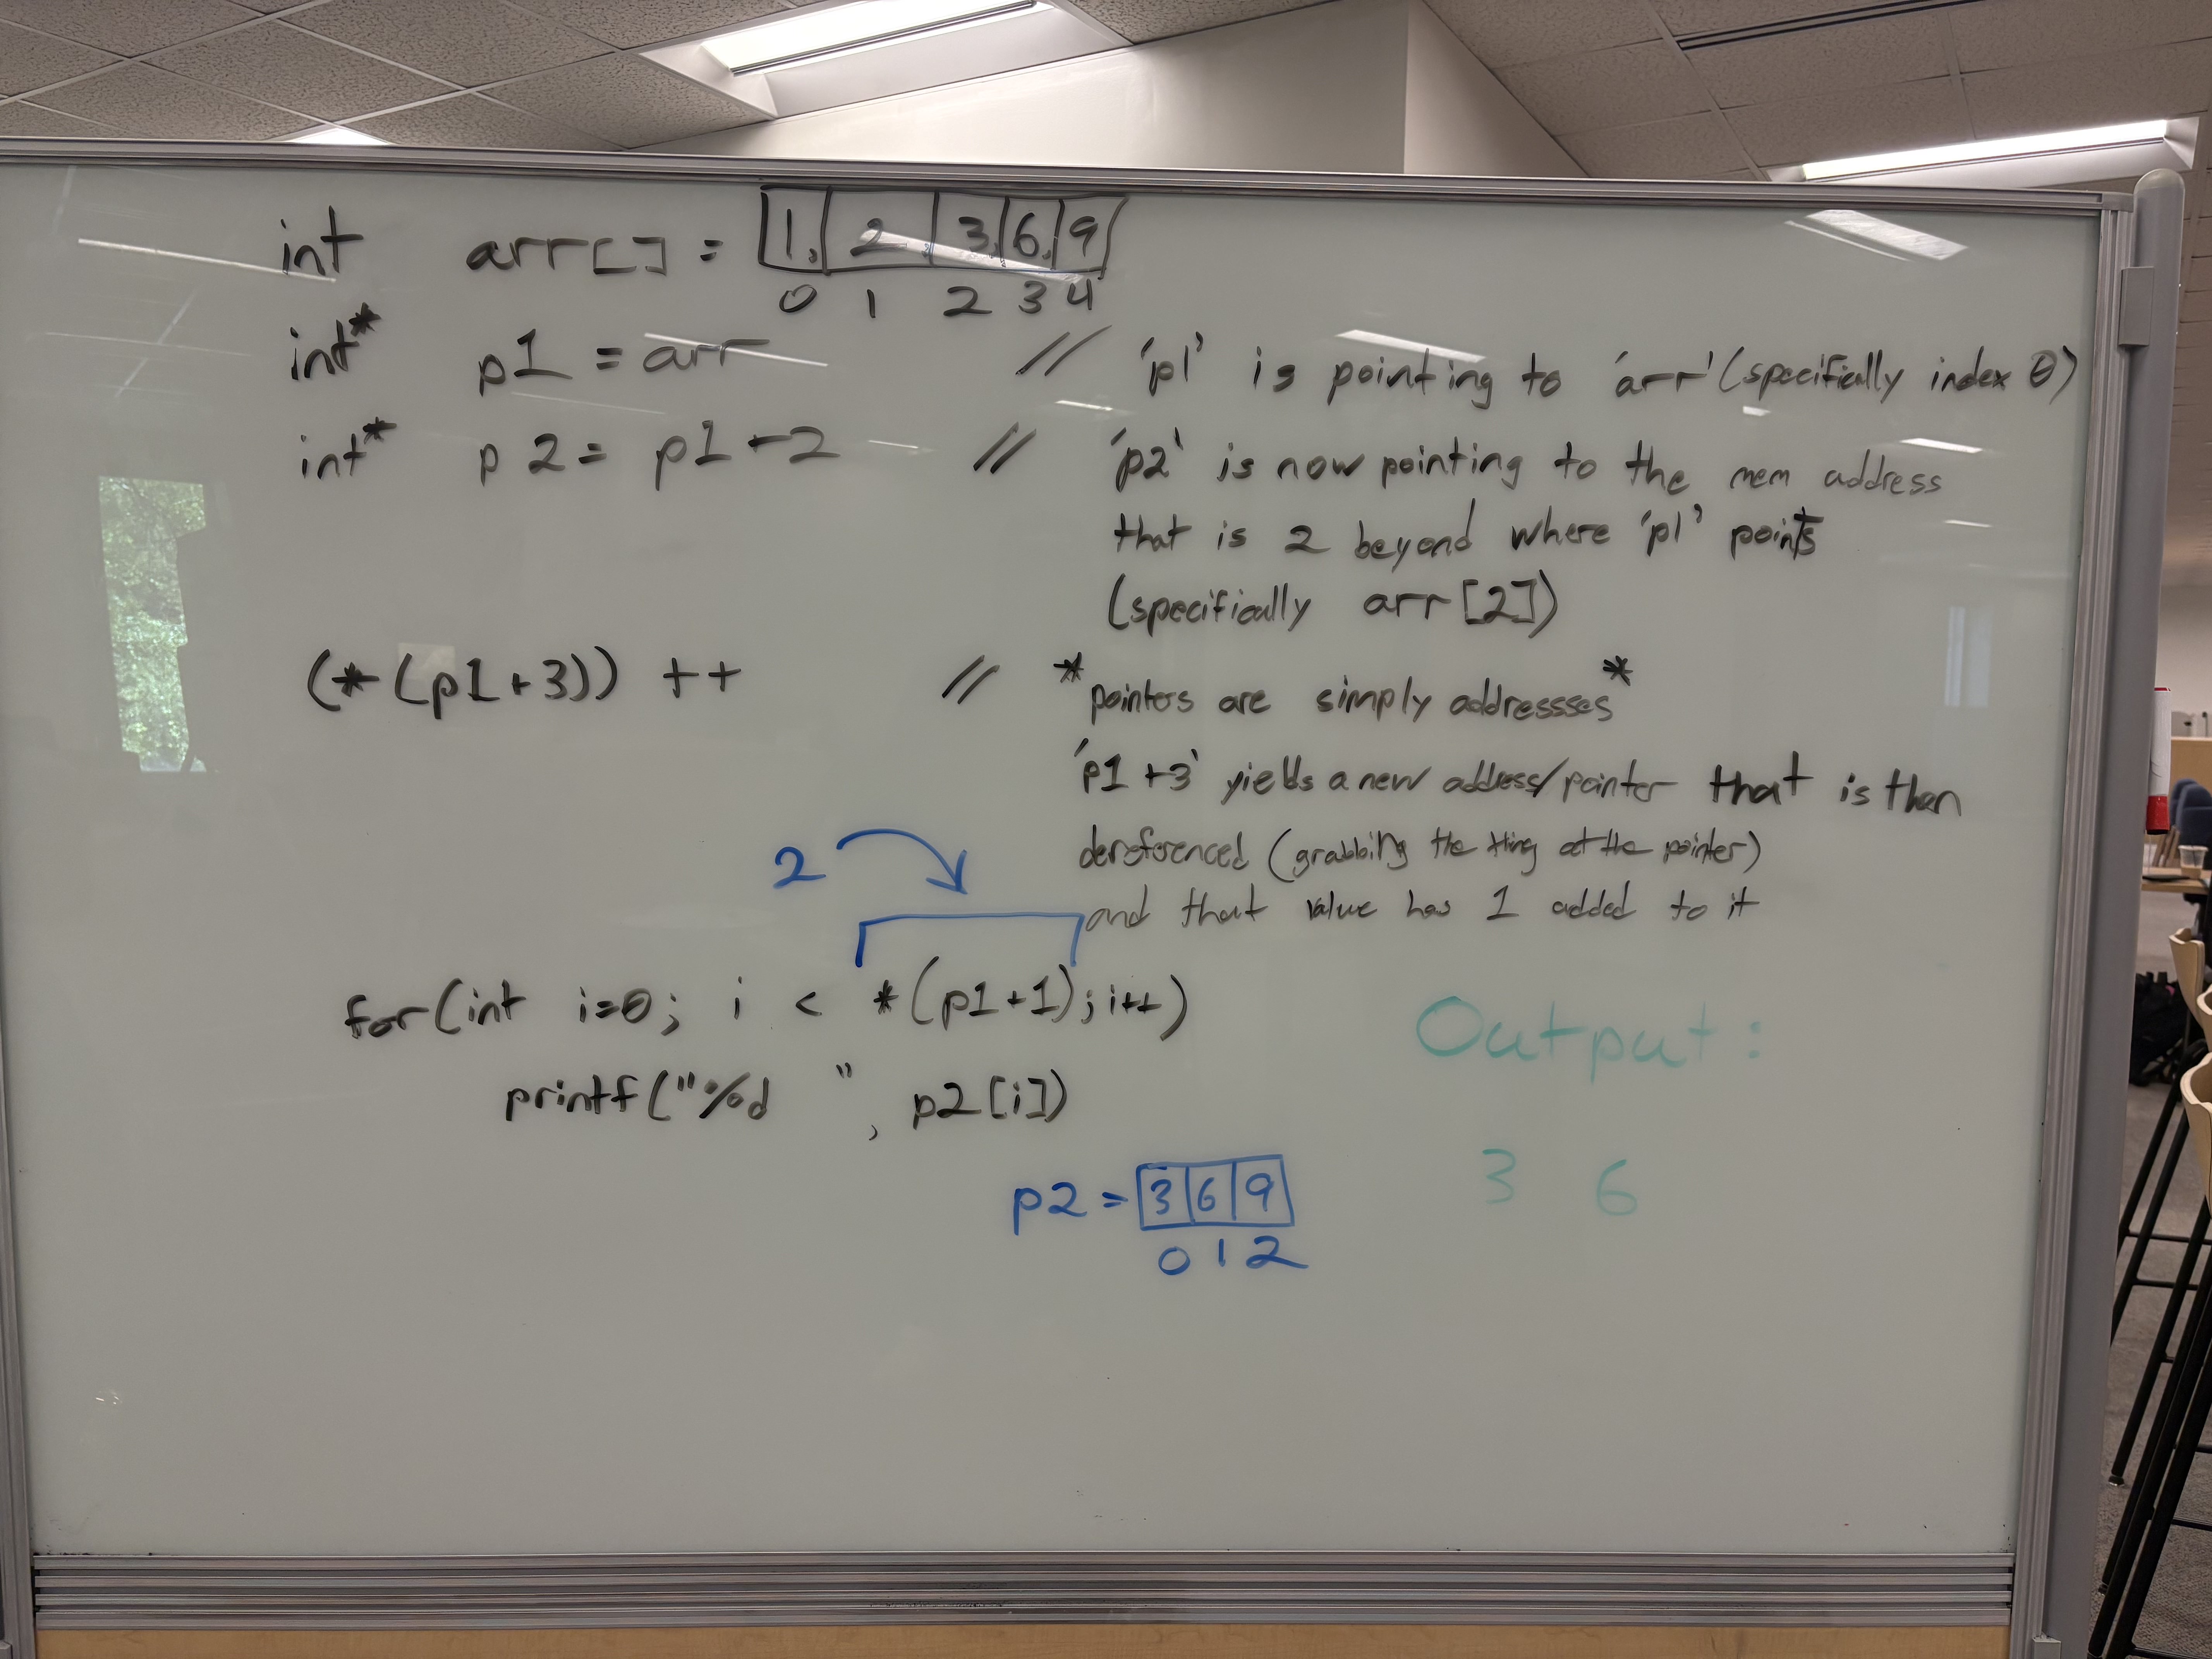 int arr[] = 1, 2, 3, 6, 9
0 1 2 3 4
int* p1 = arr // 'p1' is pointing to 'arr' (specifically index 0)
int* p2 = p1+2 // 'p2' is now pointing to the mem address
that is 2 beyond where 'p1' points
(specifically arr[2])
(*(p1+3))++ // *pointers are simply addressses*
'p1+3' yields a new address/pointer that is then
dereferenced (grabbing the thing at the pointer)
and that value has 1 added to it
2
for(int i=0; i < *(p1+1); i++)
printf("%d ", p2[i])
p2 = 3 6 9
0 1 2
Output:
3 6